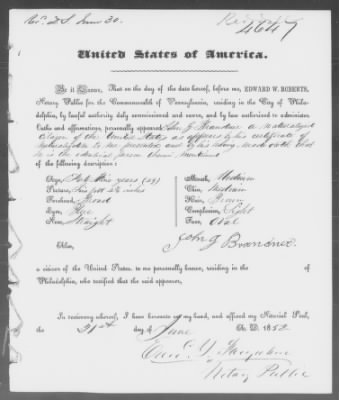 4647
United States of America.
Be it Known, That on the day of the date hereof, before me, EDWARD W. ROBERTS,
Notary Public for the Commonwealth of Pennsylvania, residing in the City of Phila-
delphia, by lawful authority duly commissioned and sworn, and by law authorized to administer
Oaths and affirmations, personally appeared John G Brandner a naturalized
citizen of the United States as appears by his certificate of
naturalization to me presented and by his solemn oath that
he is the identical person therein mentioned
of the following description:
Age, years (29)
Stature, five feet inches
Forehead, Broad
Eyes, Blue
Nose, Straight
Mouth, Medium
Chin, Medium
Hair, Brown
Complexion, Light
Face, Oval
John G Brandner
Also,
a citizen of the United States, to me personally known, residing in the of
Philadelphia, who certified that the said appearer,
In testimony whereof, I have hereunto set my hand, and affixed my Notarial Seal,
the 21st day of June A. D. 1852
Notary Public